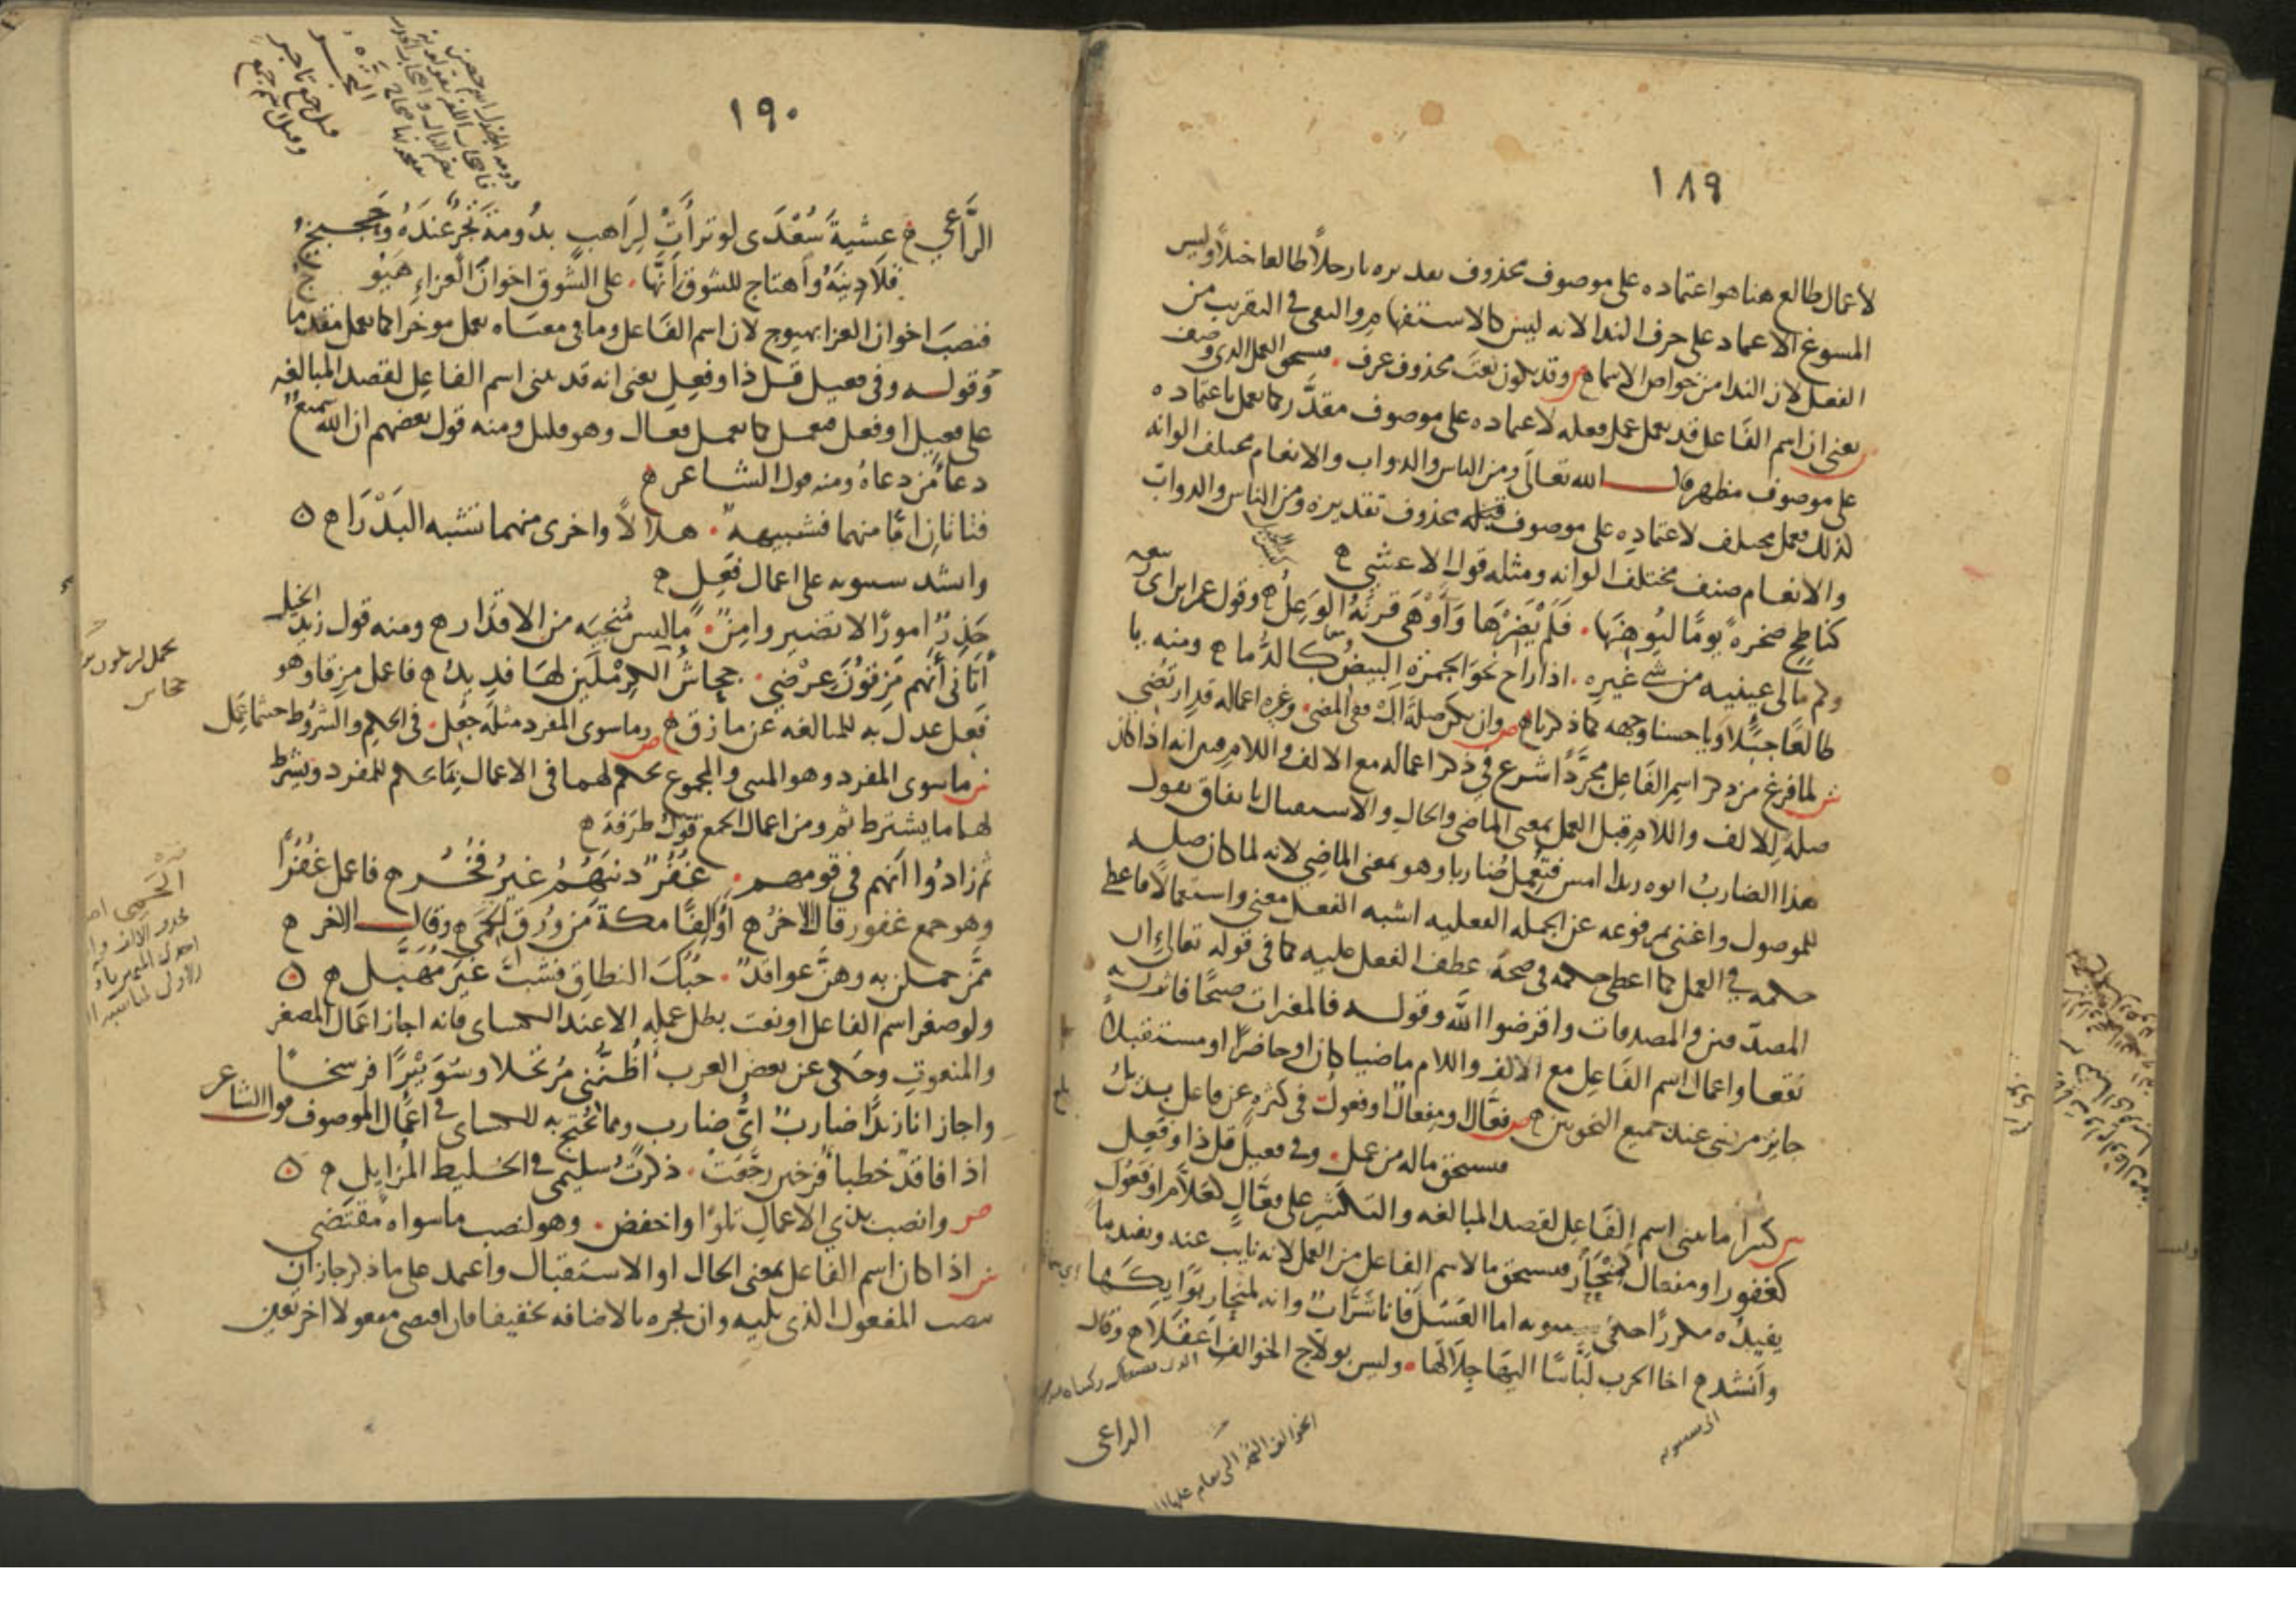 ١٨٩
لاعمال طالع هنا هو اعتماده على موصوف محذوف تقديره يا رجلاً طالعا جبلاً وليس
المسوغ الاعتماد على حرف الندا لانه ليس كالاستفهام والنفي في التقريب من
الفعل لان الندا من خواص الاسماء ص وقد يكون نعت محذوف عرف . فيستحق العمل الذي وصف
يعني ان اسم الفاعل قد يعمل عمل فعله لاعتماده على موصوف مقدّر كما يعمل باعتماده
على موصوف مظهر قال الله تعالى ومن الناس والدواب والانعام مختلف الوانه
كذلك فعمل مختلف لاعتماده على موصوف قبله محذوف تقديره ومن الناس والدواب
والانعام صنف مختلف الوانه ومثله قول الاعشى
كناطح صخرة يومًا ليوهنها . فلم يضرها وأوهى قرنه الوعل وقول عمر بن ابي ربيعه
وكم مالئ عينيه من شئ غيره . اذا راح نحو الجمرة البيض كالدما ومنه يا
طالعًا جبلاً ويا حسنا وجهه كما ذكرنا ص وان يكن صلة ال ففي المضي . وغيره اعماله قد ارتضي
ش لما فرغ من ذكر اسم الفاعل مجردًا شرع في ذكر اعماله مع الالف واللام فبين انه اذا كان
صلة للالف واللام قبل العمل بمعنى الماضي والحال والاستقبال باتفاق تقول
هذا الضارب ابوه زيدا امس فتعمل ضاربا وهو بمعنى الماضي لانه لما كان صلة
للموصول واغنى بمرفوعه عن الجملة الفعليه اشبه الفعل معنى واستعمالاً فاعطي
حكمه في العمل كما اعطي حكمه في صحة عطف الفعل عليه كما في قوله تعالى ان
المصدقين والمصدقات واقرضوا الله وقوله فالمغيرات صبحًا فاثرن به
نقعا واعمال اسم الفاعل مع الالف واللام ماضيا كان او حاضرًا او مستقبلاً
جايز مرضي عند جميع النحويين ص فعّال او مفعال او فعول في كثرة عن فاعل بديل
فيستحق ما له من عمل . وفي فعيل قل ذا وفعل
ش كثيرا ما يبنى اسم الفاعل لقصد المبالغه والتكثير على فعّال كعلاّم او فعول
كغفور او مفعال كمنحار فيستحق ما لاسم الفاعل من العمل لانه نايب عنه ويفيد ما
يفيده مكررًا حكى سيبويه اما العسل فانا شرّاب وانه لمنحار بوايكها
وانشد اخا الحرب لبّاسًا اليها جلالها . وليس بولاج الخوالف اعقلا وقال
الراعي
١٩٠
الرّاعي عشية سُعْدَى لو تراءت لراهب بدُومة تجرٌ عنده وحجيج
قلا دينه واهتاج للشوق انها . على الشوق اخوان العزاء هيوج
فنصب اخوان العزا بهيوج لان اسم الفاعل وما في معناه يعمل موخرا كما يعمل مقدما
وقوله وفي فعيل قل ذا وفعل يعني انه قد يبنى اسم الفاعل لقصد المبالغه
على فعيل او فعل فيعمل كما يعمل فعال وهو قليل ومنه قول بعضهم ان الله سميع
دعاء من دعاه ومنه قول الشاعر
فتاتان امّا منهما فشبيهة . هلالاً واخرى منهما تشبه البدرا
وانشد سيبويه على اعمال فعل
حذِرٌ امورًا لا تضير وآمن . ما ليس منجيه من الاقدار ومنه قول زيد الخيل
أتاني أنهم مزقون عرضي . جحاش الكرملين لها فديد فاعمل مزقا وهو
فعل عدل به للمبالغه عن مازق ص وما سوى المفرد مثله جعل . في الحكم والشروط حيثما عمل
ش ما سوى المفرد وهو المثنى والمجموع يحكم لهما في الاعمال بما يحكم للمفرد ويشترط
لهما ما يشترط ثم ومن اعمال الجمع قول طرفة
ثم زادوا انهم في قومهم . غفرٌ ذنبهم غير فخر فاعمل غفرًا
وهو جمع غفور قال الاخر أوالفا مكة من ورق الحمي وقال الاخر
ممن حملن به وهن عواقد . حبك النطاق فشب غير مهبّل
ولو صغر اسم الفاعل او نعت بطل عمله الا عند الكساي فانه اجاز اعمال المصغر
والمنعوت وحكى عن بعض العرب أظنني مرتحلا وسويئرًا فرسخا
واجاز انا زيدًا ضاربٌ ايُّ ضارب ومما يحتج به للكساي في اعمال الموصوف قول الشاعر
اذا فاقد خطبا فرخين رجّعت . ذكرت سليمى في الخليط المزايل
ص وانصب بذي الاعمال تلوًا واخفض . وهو لنصب ما سواه مقتضي
ش اذا كان اسم الفاعل بمعنى الحال او الاستقبال واعتمد على ما ذكر جاز ان
ينصب المفعول الذي يليه وان يجره بالاضافه تخفيفا فان اقتضى مفعولا اخر تعين